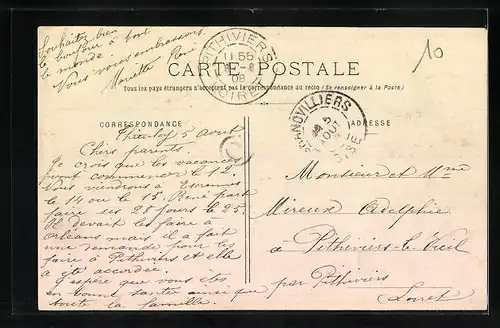 Souhaitez bien
le bonjour à tout
le monde.
Vous vous embrassons.
Mariette René
PITHIVIERS
11 55
08
LOIRET
10
CARTE POSTALE
Tous les pays étrangers n'acceptent pas la correspondance au recto (Se renseigner à la Poste)
CORRESPONDANCE
ADRESSE
GRANDVILLIERS
5
AOUT
5 Aout.
Chers parents.
Je crois que les vacances
vont commencer le 12.
Vous viendrons à
le 14 ou le 15. René part
faire ses 28 jours le 25.
Il devait les faire à
Orléans mais il a fait
une demande pour les
faire à Pithiviers et elle
a été accordée.
J'espère que vous êtes
en bonne santée ainsi que
toute la famille.
Monsieur et Mme
Mireux Adelphie
à Pithiviers-le-Vieil
par Pithiviers
Loiret